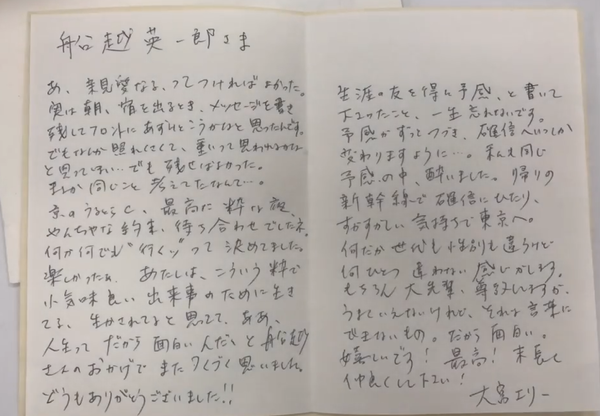 船越英一郎さま
あ、親愛なる、ってつければよかった。
実は朝、宿を出るとき、メッセージを書き
残してフロントにあずけとこうかなと思ったんです。
でもなんか照れくさくて、重いって思われるかな
と思ってしまい…でも残せばよかった。
まさか同じこと考えてたなんて…。
京のうるらしく、最高に粋な夜、
やんちゃな約束、待ち合わせでしたネ。
何が何でも“行くッ”って決めてました。
楽しかったぁ。あたしは、こういう粋で
小気味良い出来事のために生き
てる、生かされてると思ってて、ああ、
人生ってだから面白いんだ、と船越
さんのおかげでまたつくづく思いました。
どうもありがとうございました!!
生涯の友を得た予感、と書いて
下さったこと、一生忘れないです。
予感がずっとつづき、確信へいつか
変わりますように…。私も同じ
予感の中、酔いました。帰りの
新幹線で確信にひたり、
すがすがしい気持ちで東京へ。
何だか世代も性別も違うけど
何ひとつ違わない感じがします。
もちろん大先輩、尊敬しますが、
うまくいえないけれど、それは言葉に
できないもの。だから面白い。
嬉しいです!最高!末長く
仲良くして下さい!
大宮エリー